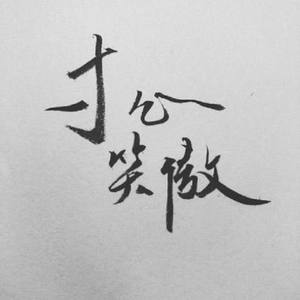 寸心
笑傲